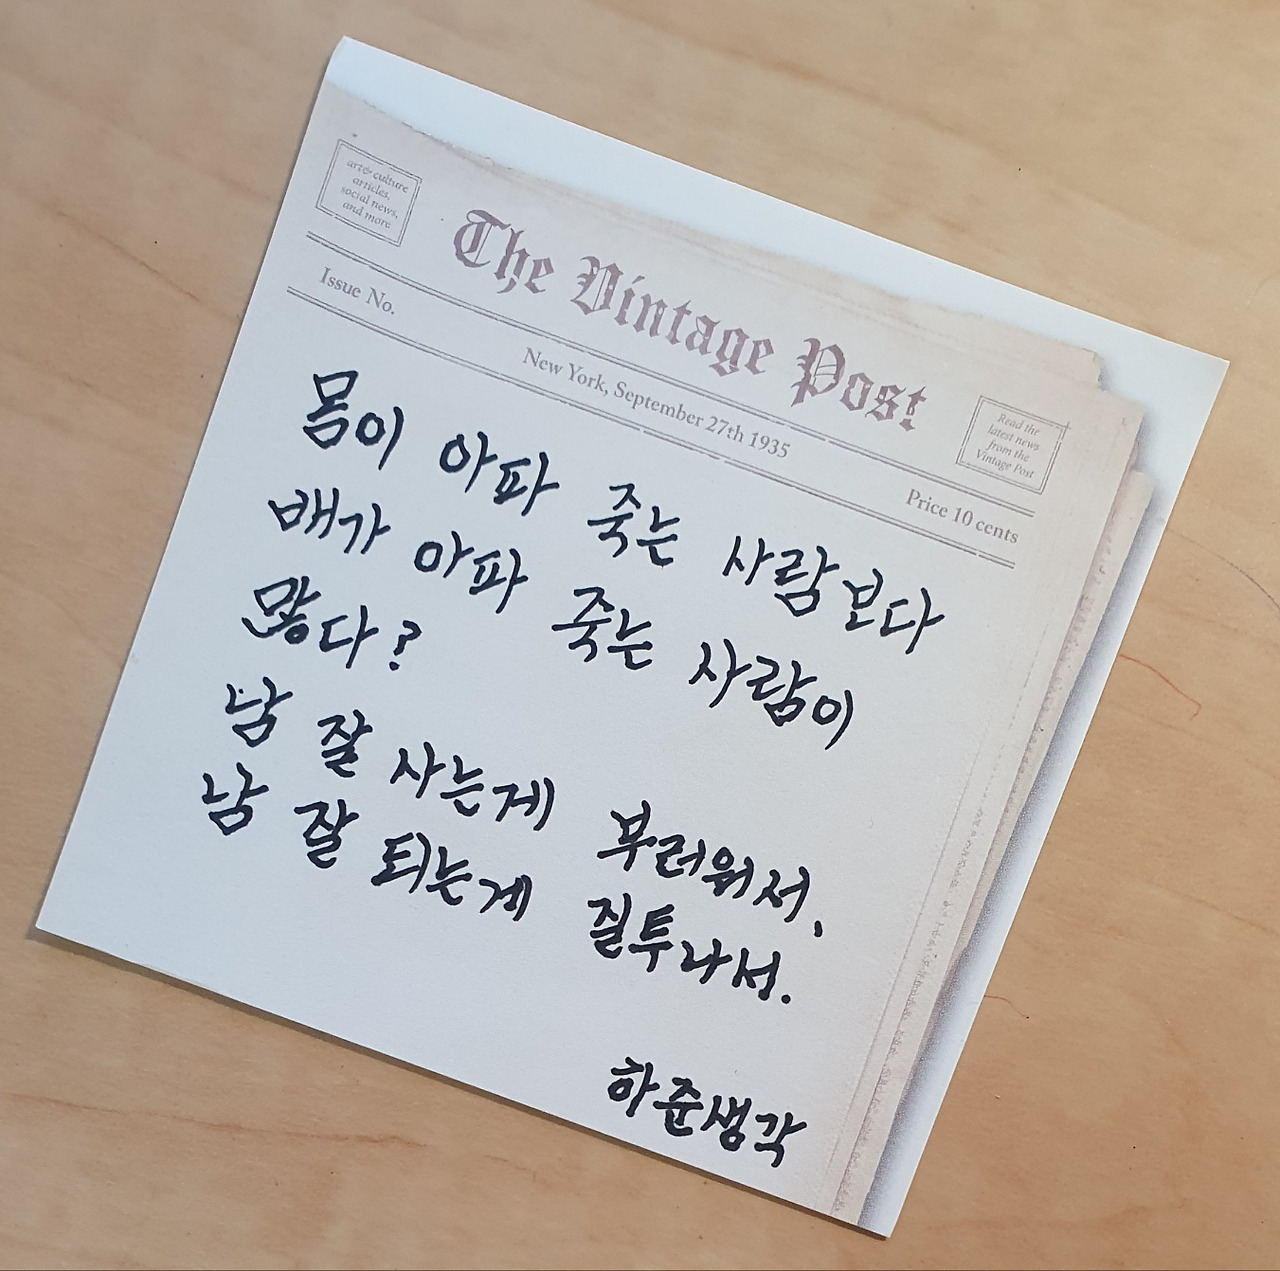 art & culture
articles,
social news,
and more
The Vintage Post
Issue No.
New York, September 27th 1935
Price 10 cents
Read the
latest news
from the
Vintage Post
몸이 아파 죽는 사람보다
배가 아파 죽는 사람이
많다?
남 잘 사는게 부러워서,
남 잘 되는게 질투나서.
하준생각